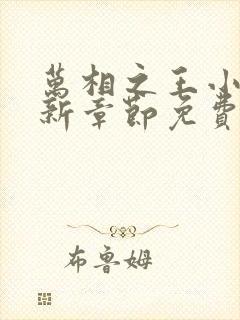 萬相之王小
新章節免費
布魯姆